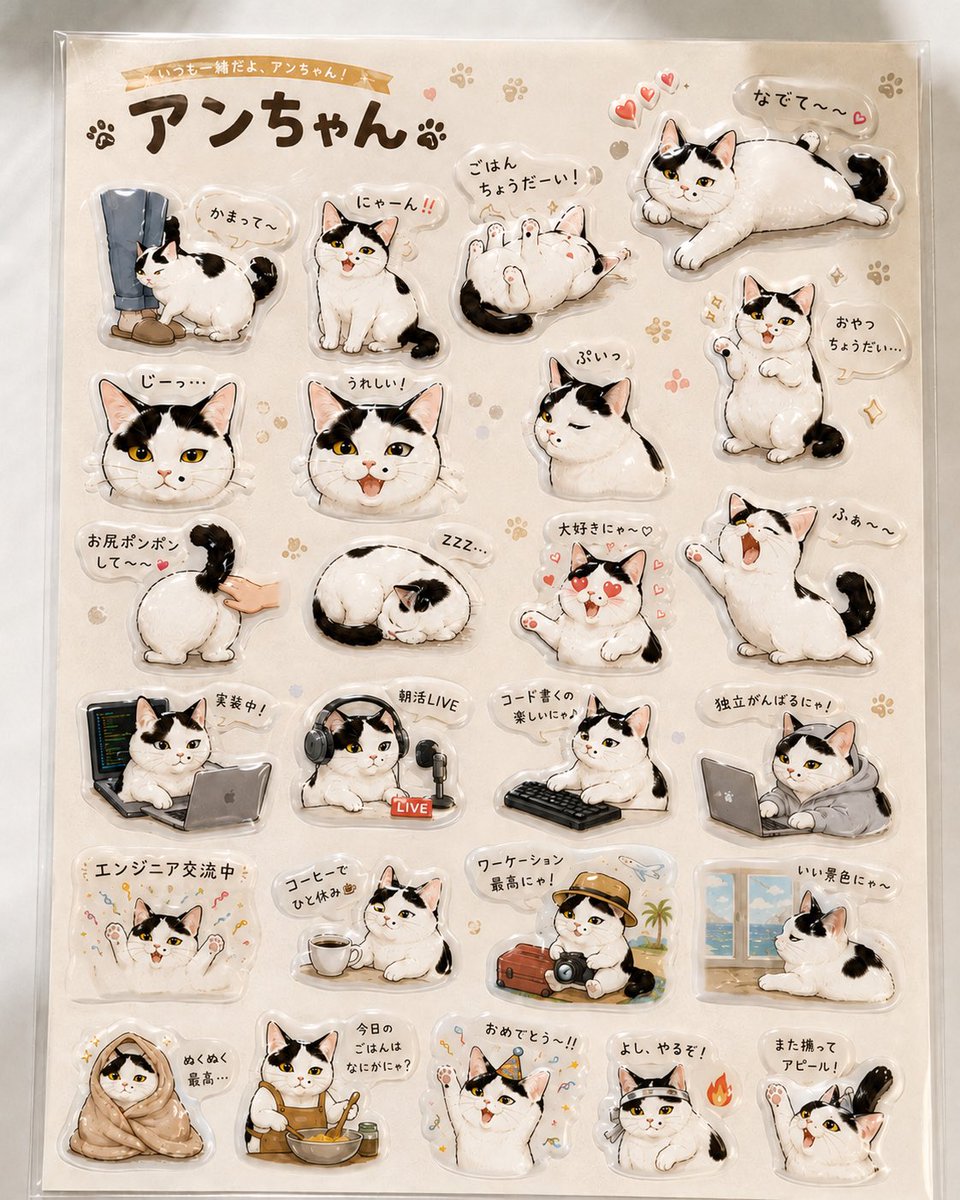 いつも一緒だよ、アンちゃん!
アンちゃん
なでて〜〜♡
かまって〜
にゃーん!!
ごはん
ちょうだーい!
おやつ
ちょうだい…
じーっ…
うれしい!
ぷいっ
お尻ポンポン
して〜〜♥
ZZZ…
大好きにゃ〜♡
ふぁ〜〜
実装中!
朝活LIVE
LIVE
コード書くの
楽しいにゃ♪
独立がんばるにゃ!
エンジニア交流中
コーヒーで
ひと休み
ワーケーション
最高にゃ!
いい景色にゃ〜
ぬくぬく
最高…
今日の
ごはんは
なにがにゃ?
おめでとう〜!!
よし、やるぞ!
アピール!